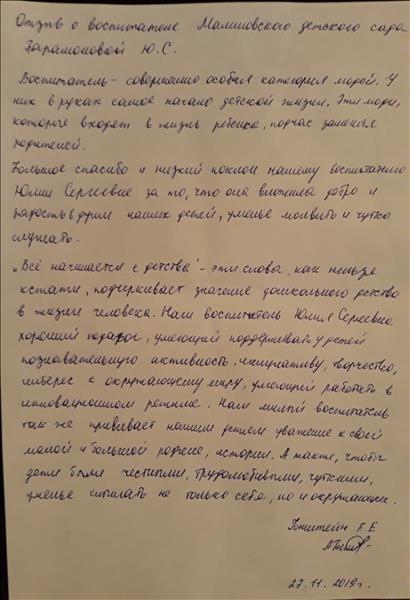 Отзыв о воспитателе Малиновского детского сада
Парамоновой Ю.С.
Воспитатель – совершенно особая категория людей. У
них в руках самое начало детской жизни. Эти люди,
которые входят в жизнь ребенка, подчас заменяя
родителей.
Большое спасибо и низкий поклон нашему воспитателю
Юлии Сергеевне за то, что она вложила добро и
радость в души наших детей, уменье молвить и чутко
слушать.
„Всё начинается с детства" - эти слова, как нельзя
кстати, подчеркивает значение дошкольного детства
в жизни человека. Наш воспитатель Юлия Сергеевна
хороший педагог, умеющий поддерживать у детей
познавательную активность, инициативу, творчество,
интерес к окружающему миру, умеющий работать в
инновационном режиме. Наш милый воспитатель
так же прививает нашим детям уважение к своей
малой и большой родине, истории. А также, чтобы
дети были честными, трудолюбивыми, чуткими,
уменье слышать не только себя, но и окружающих.
Е.Е.
27.11.2019г.